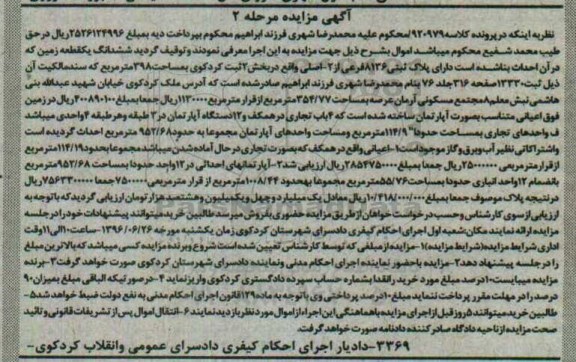 آگهی مزایده مرحله ۲
نظریه اینکه درپرونده کلاسه ۹۲۰۹۷۹محکوم علیه محمدرضا شهری فرزند ابراهیم محکوم بپرداخت دیه بمبلغ ۲۵۲۶۱۲۴۹۹۶ریال درحق
طیب محمد شفیع محکوم میباشد اموال بشرح ذیل جهت مزایده به این اجرا معرفی نمودند و توقیف گردید ششدانگ یکقطعه زمین که
در آن احداث بناشده است دارای پلاک ثبتی ۸۱۳۶فرعی از ۲-اصلی واقع دربخش۲ثبت کردکوی بمساحت ۳۹۸مترمربع که سندمالکیت آن
ذیل ثبت ۱۳۳۳۰صفحه ۳۱۶جلد ۷۶ بنام محمدرضا شهری فرزند ابراهیم صادرشده است که آدرس ملک کردکوی خیابان شهید عبدالله بنی
هاشمی نبش معلم۸مجتمع مسکونی آرمان عرصه بمساحت ۳۵۴/۷۷مترمربع ازقرار مترمربعی ۱۱۳۰۰۰۰ریال جمعابمبلغ ۴۰۰۸۹۰۱۰۰ریال در زمین
فوق اعیانی متناسب بصورت آپارتمان ساخته شده است که ۴باب تجاری درهمکف و۱۲دستگاه آپارتمان در۳ طبقه وهرطبقه ۴واحدی میباشد
ف واحدهای تجاری بمساحت حدودا ۱۱۴/۹مترمربع ومساحت واحدهای آپارتمان مجموعا به حدود ۹۵۲/۶۸ مترمربع احداث گردیده است
واشتراکاتی نظیر آب وبرق وگاز موجوداست ۱-اعیانی واقع درهمکف که بصورت تجاری درحال آماده شدن میباشد مجموعابحدود ۱۱۴/۱۹مترمربع
ازقرار متر مربعی ۲۵۰۰۰۰۰۰ریال جمعا بمبلغ ۲۸۵۴۷۵۰۰۰۰ریال ارزیابی شد۲-آپارتمانهای احداثی در ۱۲واحد حدودا بمساحت ۹۵۲/۶۸مترمربع
بانضمام ۱۲واحد انباری حدودا بمساحت ۵۵/۷۶مترمربع مجموعا بهحدود ۱۰۰۸/۴۴مترمربع از قرار مترمربعی ۷۵۰۰۰۰۰جمعا ۷۵۶۳۳۰۰۰۰۰ریال
در نتیجه پلاک موصوف جمعا بمبلغ ریال معادل یک میلیارد وچهل ویکمیلیون وهفتصد هزار تومان ارزیابی گردیدکه باتوجه به
ارزیابی از سوی کارشناس وحسب درخواست خواهان از طریق مزایده حضوری بفروش میرسد طالبین خرید میتوانند پیشنهادات خود را درجلسه
مزایده ارائه نمایند مکان:شعبه اول اجرای احکام کیفری دادسرای شهرستان کردکوی زمان یکشنبه مورخه ۱۳۹۶/۰۶/۲۶ -ساعت۱۰الی ۱۱وقت
اداری شرایط مزایده(شرایط مزایده)۱-مزایده ازمبلغی که توسط کارشناس تعیین شده است شروع وبرنده مزایده کسی میباشد که بالاترین مبلغ
را درجلسه پیشنهاد دهد۲-مزایده باحضور نماینده اجرای احکام مدنی ونماینده دادسرای شهرستان کردکوی صورت خواهد گرفت۳-برنده
مزایده میبایست ۱۰درصد مبلغ مورد خرید رانقدا بشماره حساب سپرده دادگستری کردکوی واریزنماید ۴-درصورتیکه الباقی مبلغ بمیزان ۹۰
درصد را در مهلت مقرر پرداخت ننماید مبلغ ۱۰درصد پرداختی وی باتوجه به ماده ۱۲۹قانون اجرای احکام مدنی به نفع دولت ضبط خواهد شد۵-
طالبین خرید میتوانند ۵روز قبل ازاجرای مزایده باهماهنگی این اجراء ازاموال مورد نظر بازدیدنمایند ۶-انتقال اموال پس از تشریفات قانونی و تائید
صحت مزایده ازناحیه دادگاه صادرکننده دادنامه صورت خواهد گرفت.
۳۳۶۹-دادیار اجرای احکام کیفری دادسرای عمومی وانقلاب کردکوی-